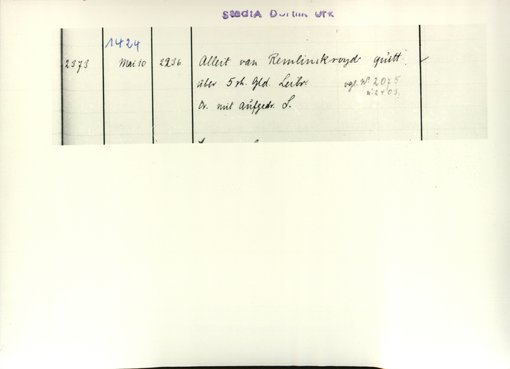 StadtA Dortm Urk
1424
2373 Mai 10 2236 Albert van Remlinckroyd quitt.
über 5 rh. Gld. Leibr. vgl. No 2075
Or. mit aufgedr. S.